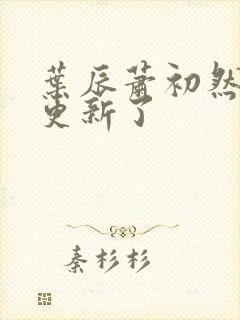 葉辰蕭初然
更新了
秦杉杉